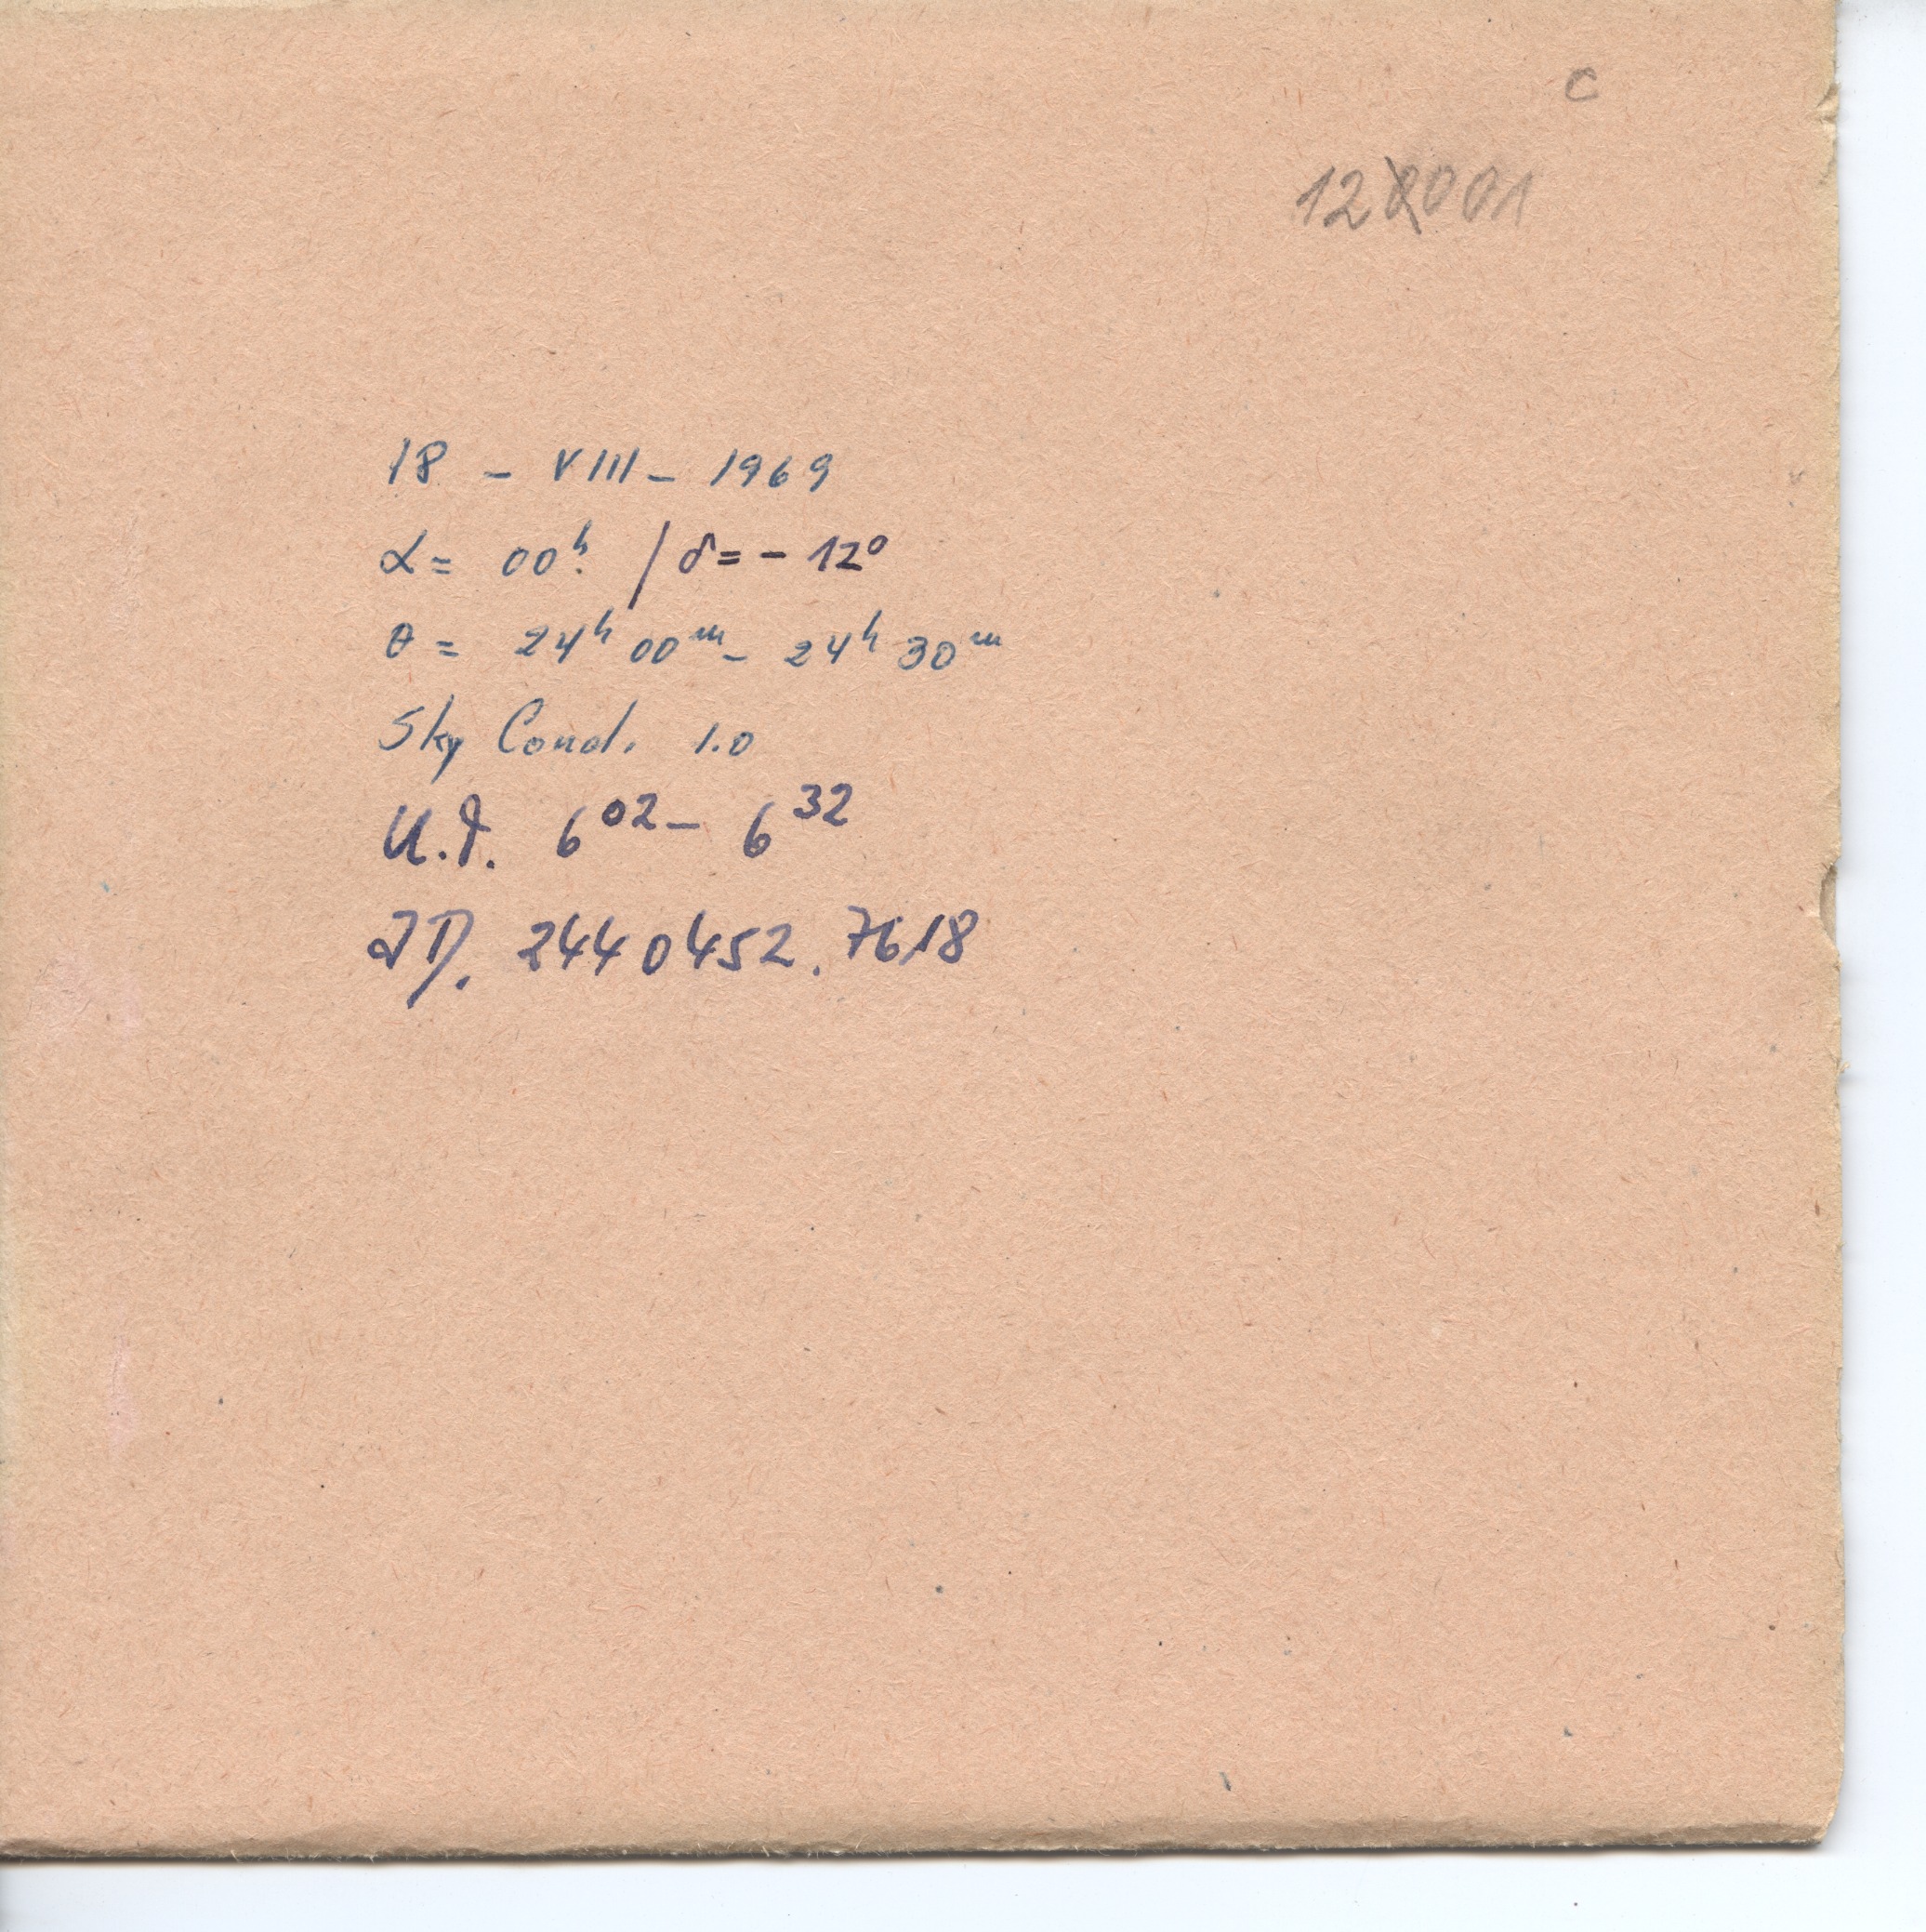 C
12001
18 - VIII - 1969
α = 00ʰ. / δ = - 12°
θ = 24ʰ 00ᵐ - 24ʰ 30ᵐ
Sky Cond. 1.0
U.T. 6⁰² - 6³²
JD. 2440452.7618